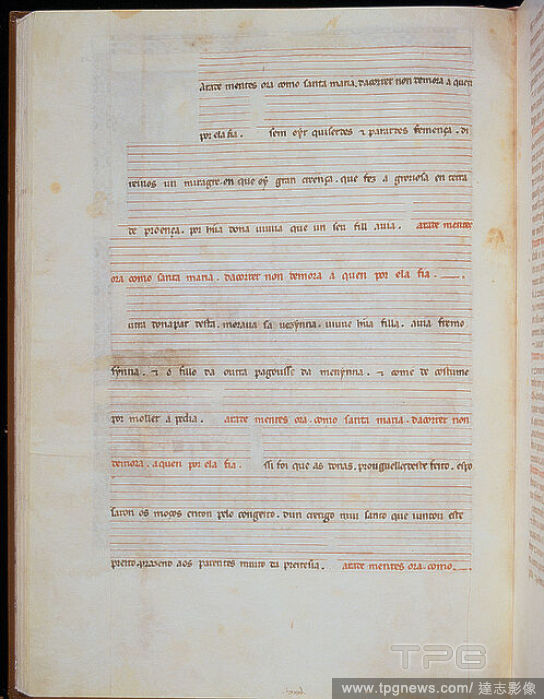 atade mentes ora como santa maria. dacorrer non demora a quen
por ela fia. sem oyr quiserdes & parardes femença. di
reivos un miragre. en que ey gran creença. que fez a groriosa en terra
de proença. por hũa dona viuva que un seu fill avia. atade mentes
ora como santa maria. dacorrer non demora a quen por ela fia.
utra dona par desta. morava sa vezynna. viuve hũa filla. avia fremo
synna. & o fillo da outra pagousse da menynna. & come de costume
por moller a pedia. atade mentes ora. como santa maria. dacorrer non
demora. a quen por ela fia. ssi foi que as donas. prouguelles deste feito. espo
saron os moços enton pelo congeito. dun crerigo mui santo que juntou este
preito. prazendo aos parentes muito da preitesia. atade mentes ora. como
TPG
www.tpgnews.com / 達志影像